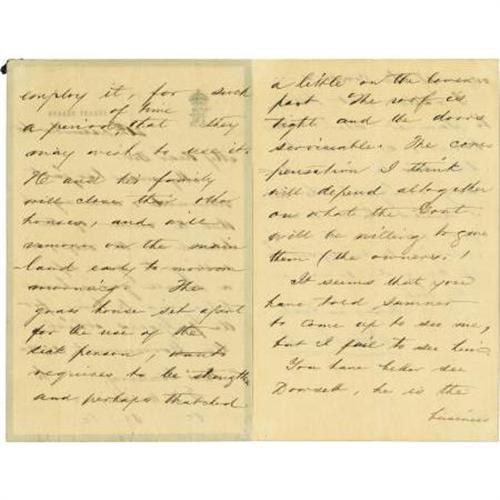 employ it, for such
of time
a period that they
may wish to use it.
He and his family
will close their other
houses, and will
remove on the main
land early to-morrow
morning. The
grass house set apart
for the use of the
sick person, wants
requires to be strengthen
and perhaps thatched
a little on the lower
part. The roof is
tight and the doors
serviceable. The com
pensation I think
will depend altogether
on what the Govt
will be willing to give
them (the owners.)
It seems that you
have told Sumner
to come up to see me,
but I fail to see him.
You have better see
Dowsett, he is the
business